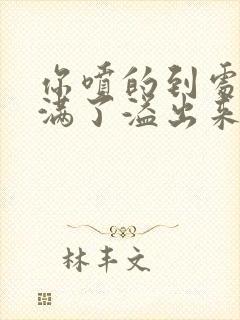 你喷的到处
满了溢出来
林丰文